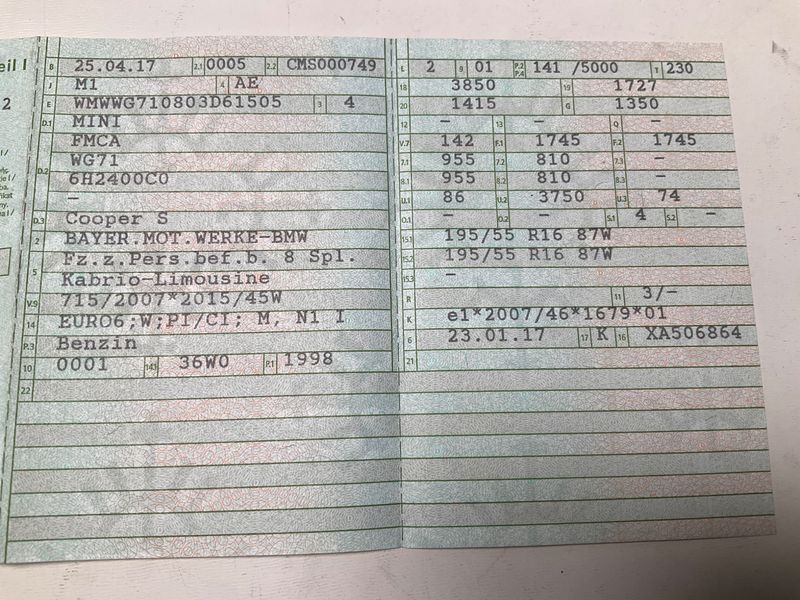 eil I
B 25.04.17 2.1 0005 2.2 CMS000749
J M1 4 AE
E WMWWG710803D61505 3 4
D.1 MINI
D.2 FMCA
WG71
6H2400C0
–
D.3 Cooper S
2 BAYER.MOT.WERKE-BMW
5 Fz.z.Pers.bef.b. 8 Spl.
Kabrio-Limousine
V.9 715/2007*2015/45W
14 EURO6;W;PI/CI; M, N1 I
P.3 Benzin
10 0001 14.1 36W0 P.1 1998
22
L 2 9 01 P.2 P.4 141 /5000 T 230
18 3850 19 1727
20 1415 G 1350
12 – 13 – Q –
V.7 142 F.1 1745 F.2 1745
7.1 955 7.2 810 7.3 –
8.1 955 8.2 810 8.3 –
U.1 86 U.2 3750 U.3 74
O.1 – O.2 – S.1 4 S.2 –
15.1 195/55 R16 87W
15.2 195/55 R16 87W
15.3 –
R 11 3/–
K e1*2007/46*1679*01
6 23.01.17 17 K 16 XA506864
21